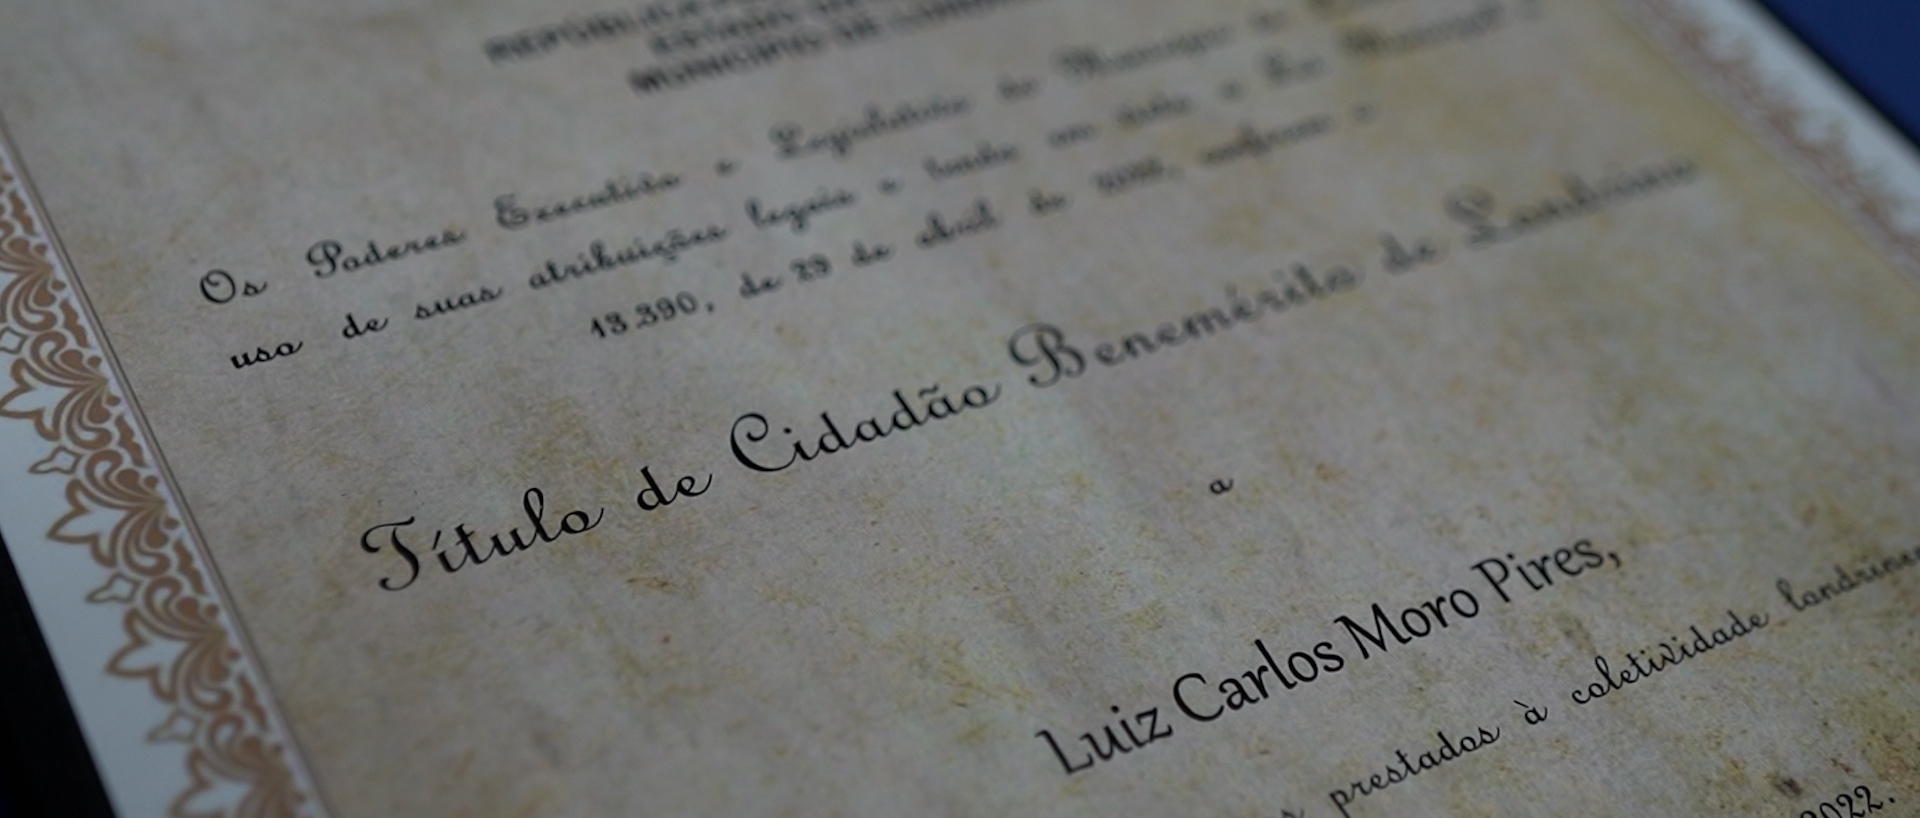 REPÚBLICA
ESTADO DO
MUNICÍPIO DE LONDRINA
Os Poderes Executivo e Legislativo do Município de
uso de suas atribuições legais e tendo em vista a Lei Municipal
13.390, de 29 de abril de 2022, conferem o
Título de Cidadão Benemérito de Londrina
a
Luiz Carlos Moro Pires,
prestados à coletividade londrinen
2022.